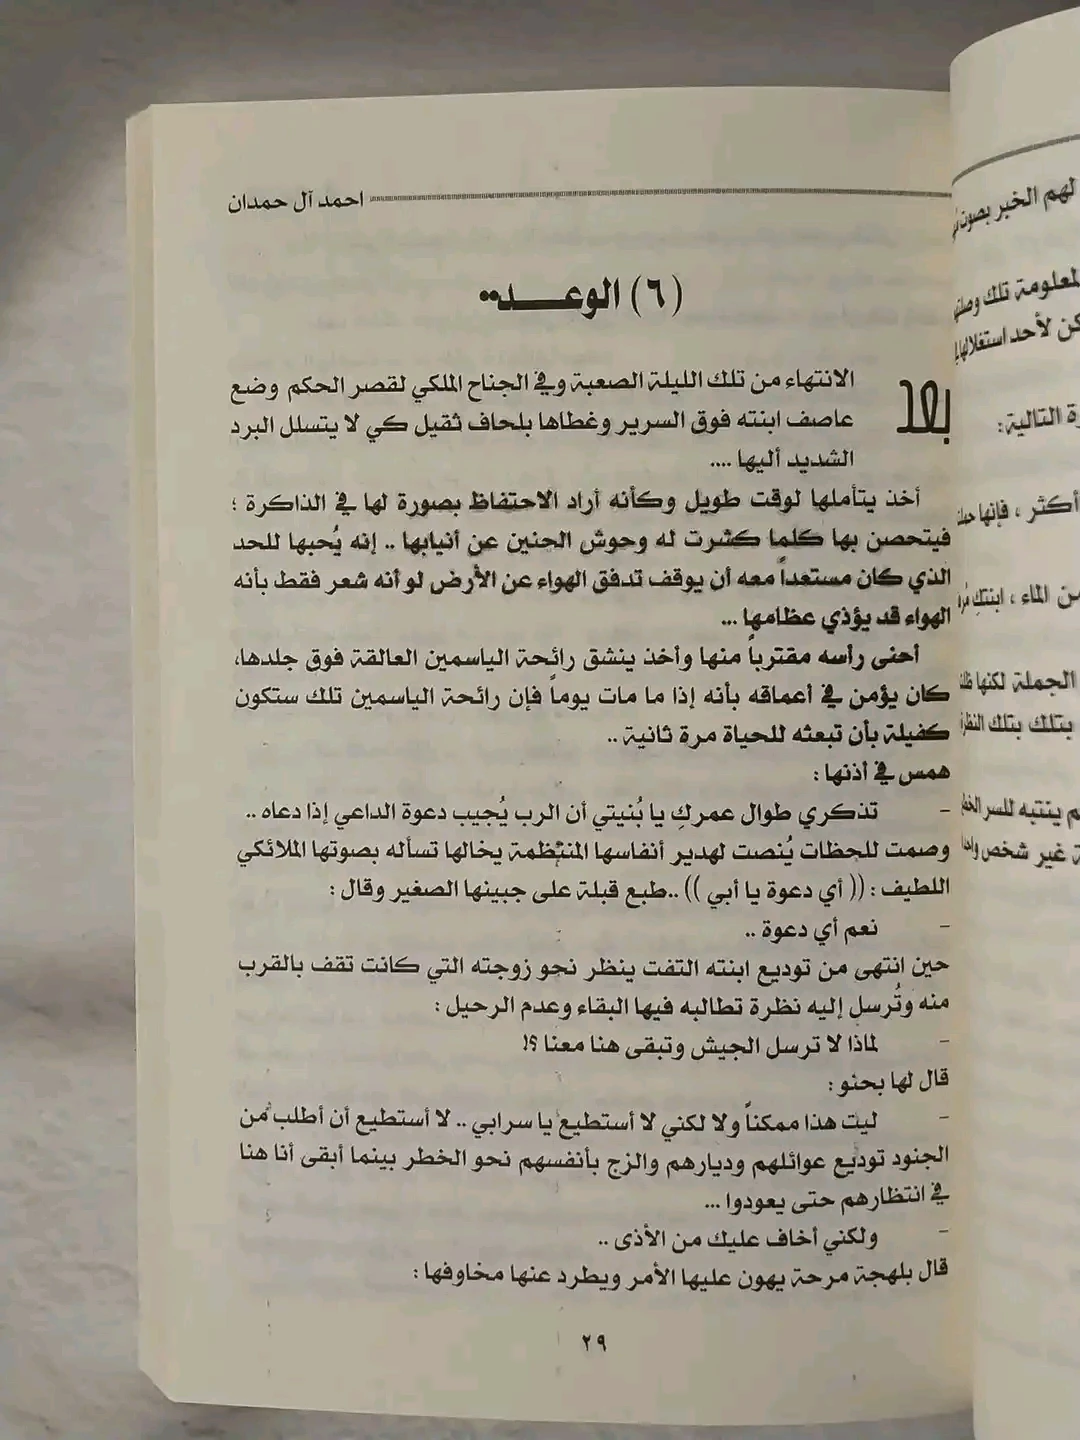 احمد آل حمدان
(٦) الوعـــد..
بعد الانتهاء من تلك الليلة الصعبة وفي الجناح الملكي لقصر الحكم وضع
عاصف ابنته فوق السرير وغطاها بلحاف ثقيل كي لا يتسلل البرد
الشديد أليها ....
أخذ يتأملها لوقت طويل وكأنه أراد الاحتفاظ بصورة لها في الذاكرة ؛
فيتحصن بها كلما كشرت له وحوش الحنين عن أنيابها .. إنه يُحبها للحد
الذي كان مستعداً معه أن يوقف تدفق الهواء عن الأرض لو أنه شعر فقط بأنه
الهواء قد يؤذي عظامها ...
أحنى رأسه مقترباً منها وأخذ ينشق رائحة الياسمين العالقة فوق جلدها،
كان يؤمن في أعماقه بأنه إذا ما مات يوماً فإن رائحة الياسمين تلك ستكون
كفيلة بأن تبعثه للحياة مرة ثانية ..
همس في أذنها :
- تذكري طوال عمركِ يا بُنيتي أن الرب يُجيب دعوة الداعي إذا دعاه ..
وصمت للحظات يُنصت لهدير أنفاسها المنتظمة يخالها تسأله بصوتها الملائكي
اللطيف : (( أي دعوة يا أبي )) ..طبع قبلة على جبينها الصغير وقال :
- نعم أي دعوة ..
حين انتهى من توديع ابنته التفت ينظر نحو زوجته التي كانت تقف بالقرب
منه وتُرسل إليه نظرة تطالبه فيها البقاء وعدم الرحيل :
- لماذا لا ترسل الجيش وتبقى هنا معنا ؟!
قال لها بحنو :
- ليت هذا ممكناً ولا لكني لا أستطيع يا سرابي .. لا أستطيع أن أطلب من
الجنود توديع عوائلهم وديارهم والزج بأنفسهم نحو الخطر بينما أبقى أنا هنا
في انتظارهم حتى يعودوا ...
- ولكني أخاف عليك من الأذى ..
قال بلهجة مرحة يهون عليها الأمر ويطرد عنها مخاوفها :
٢٩
لهم الخبر بصوت
المعلومة تلك
لأحد استغلالها
التالية :
أكثر ، فإنها
الماء ، ابنتكِ
الجملة لكنها
بتلك بتلك
ينتبه للسر
غير شخص